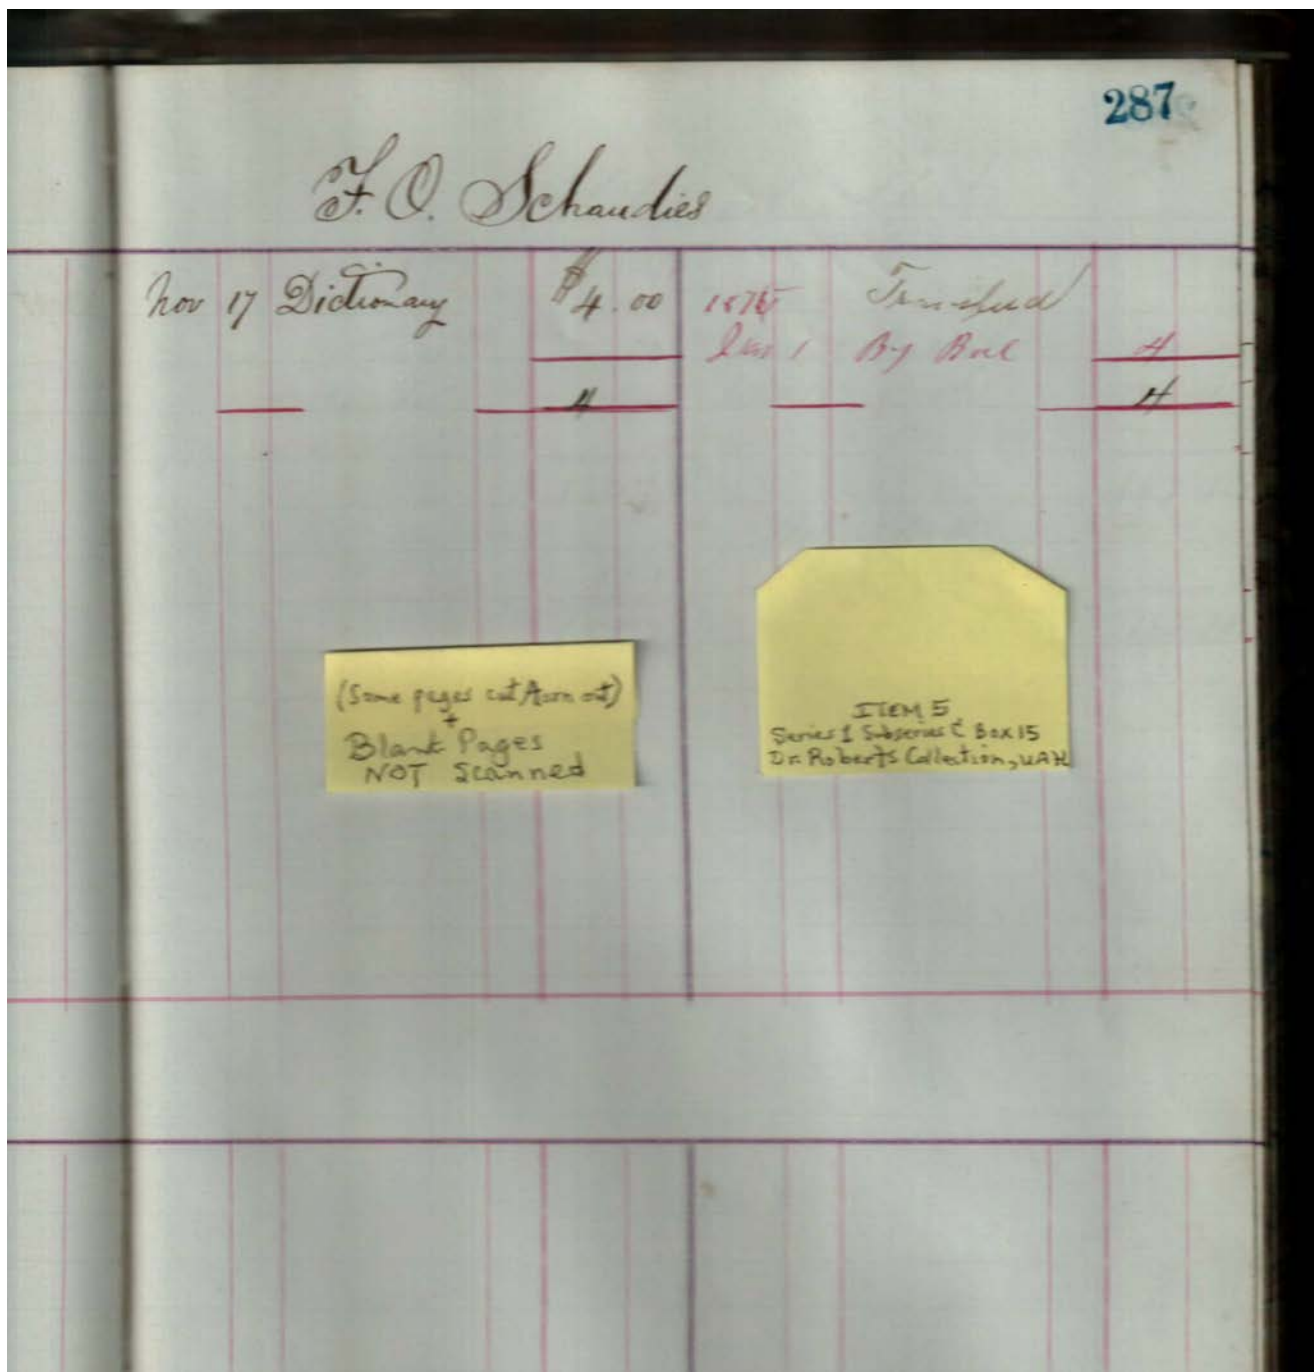 287
F. O. Schaudies
Nov 17 Dictionary $4.00
1875 Transferd
Jan 1 By Bal 4
4 4
(Some pages cut/torn out)
+
Blank Pages
NOT Scanned
ITEM 5
Series 1 Subseries C Box 15
Dr. Roberts Collection, UAH